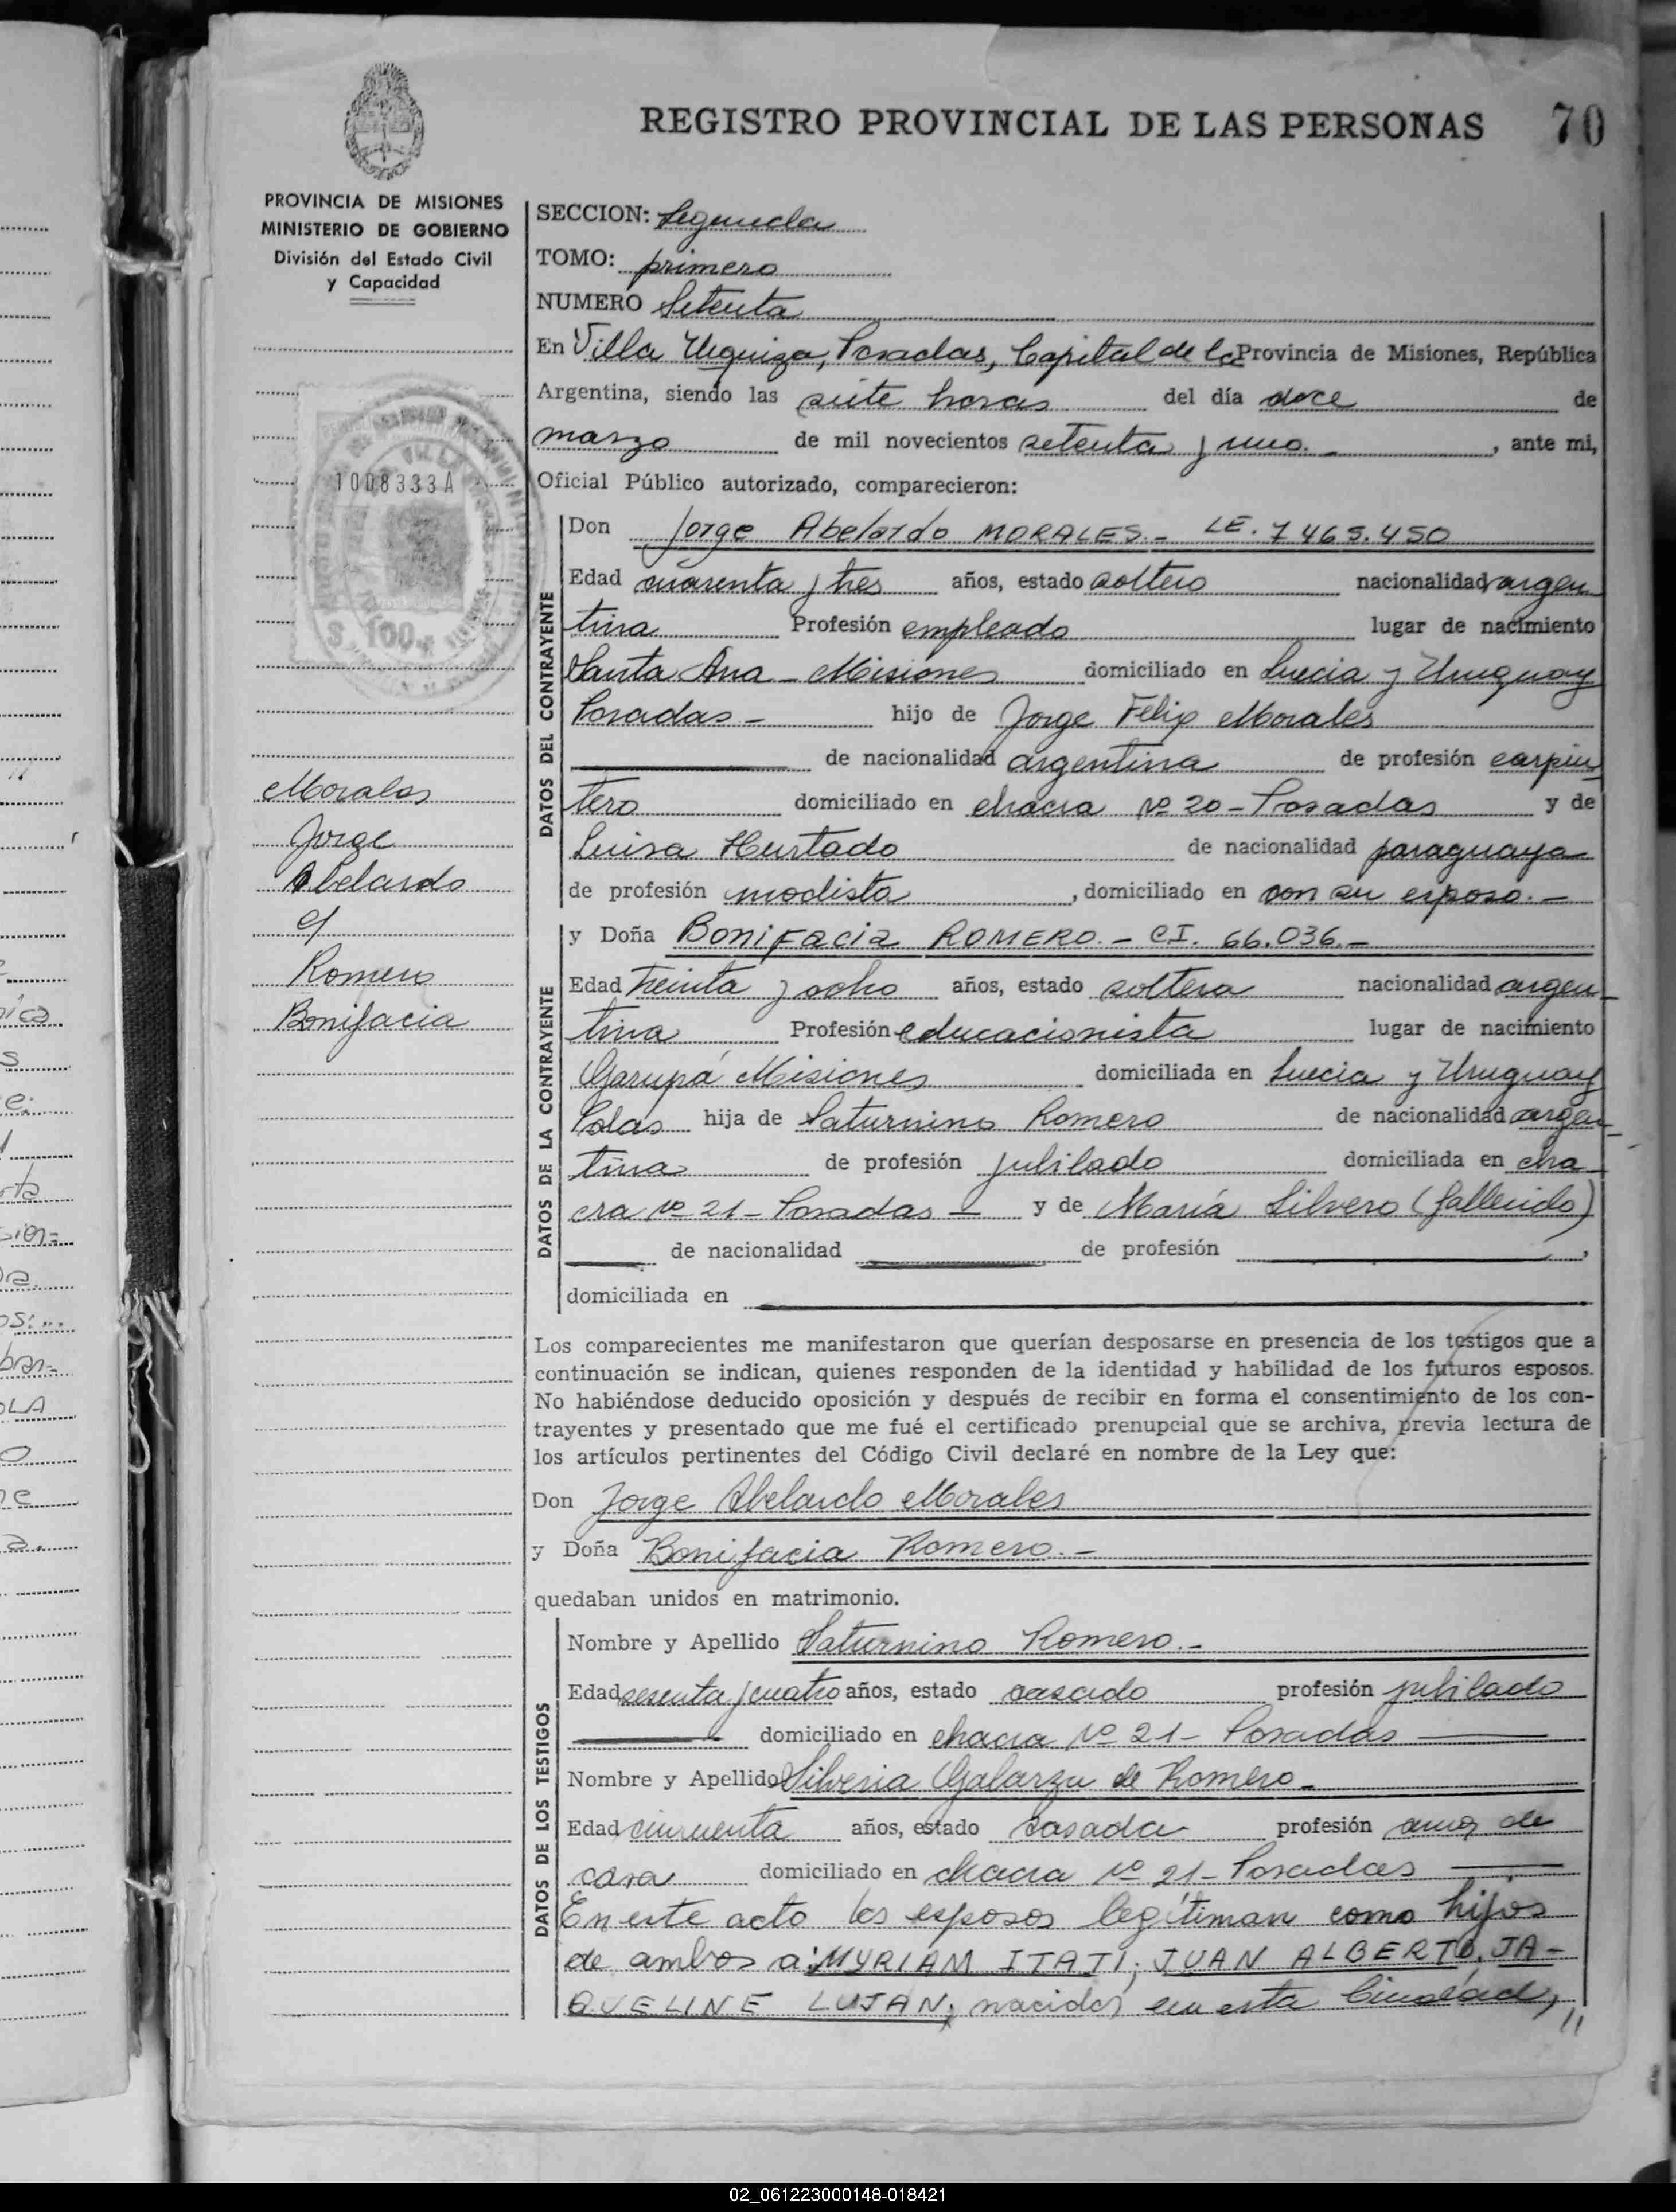 REGISTRO PROVINCIAL DE LAS PERSONAS 70
PROVINCIA DE MISIONES
MINISTERIO DE GOBIERNO
División del Estado Civil
y Capacidad
1008333A
S. 100
Morales
Jorge
Abelardo
c/
Romero
Bonifacia
SECCION: Segunda
TOMO: primero
NUMERO Setenta
En Villa Urquiza, Posadas, Capital de la Provincia de Misiones, República
Argentina, siendo las siete horas del día doce de
marzo de mil novecientos setenta y uno. - , ante mi,
Oficial Público autorizado, comparecieron:
DATOS DEL CONTRAYENTE
Don Jorge Abelardo MORALES.- LE. 7465.450
Edad cuarenta y tres años, estado soltero nacionalidad argen
tina Profesión empleado lugar de nacimiento
Santa Ana - Misiones domiciliado en Suecia y Uruguay
Posadas - hijo de Jorge Felix Morales
de nacionalidad argentina de profesión carpin
tero domiciliado en chacra Nº 20 - Posadas y de
Luisa Hurtado de nacionalidad paraguaya
de profesión modista , domiciliado en con su esposo. -
DATOS DE LA CONTRAYENTE
y Doña Bonifacia ROMERO. - CI. 66.036. -
Edad treinta y ocho años, estado soltera nacionalidad argen-
tina Profesión educacionista lugar de nacimiento
Garupá Misiones domiciliada en Suecia y Uruguay
Pdas hija de Saturnino Romero de nacionalidad argen-
tina de profesión jubilado domiciliada en cha
cra Nº 21 - Posadas - y de María Silvero (fallecido)
de nacionalidad de profesión ,
domiciliada en
Los comparecientes me manifestaron que querían desposarse en presencia de los testigos que a
continuación se indican, quienes responden de la identidad y habilidad de los futuros esposos.
No habiéndose deducido oposición y después de recibir en forma el consentimiento de los con-
trayentes y presentado que me fué el certificado prenupcial que se archiva, previa lectura de
los artículos pertinentes del Código Civil declaré en nombre de la Ley que:
Don Jorge Abelardo Morales
y Doña Bonifacia Romero. -
quedaban unidos en matrimonio.
DATOS DE LOS TESTIGOS
Nombre y Apellido Saturnino Romero. -
Edad sesenta y cuatro años, estado casado profesión jubilado
domiciliado en chacra Nº 21 - Posadas
Nombre y Apellido Silveria Galarza de Romero -
Edad cincuenta años, estado casada profesión ama de
casa domiciliado en chacra Nº 21 - Posadas
En este acto los esposos legitiman como hijos
de ambos a: MYRIAM ITATI; JUAN ALBERTO, JA-
QUELINE LUJAN; nacidos en esta Ciudad, //
02_061223000148-018421